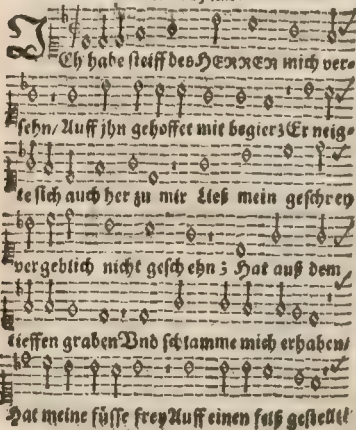 ICh habe steiff des HERREN mich ver-
sehn/ Auff jhn gehoffet mit begier; Er neig-
te sich auch her zu mir Ließ mein geschrey
vergeblich nicht gescheh̄n; Hat auß dem
tieffen graben Vnd schlamme mich erhaben/
Hat meine füsse frey Auff einen felß gestellt